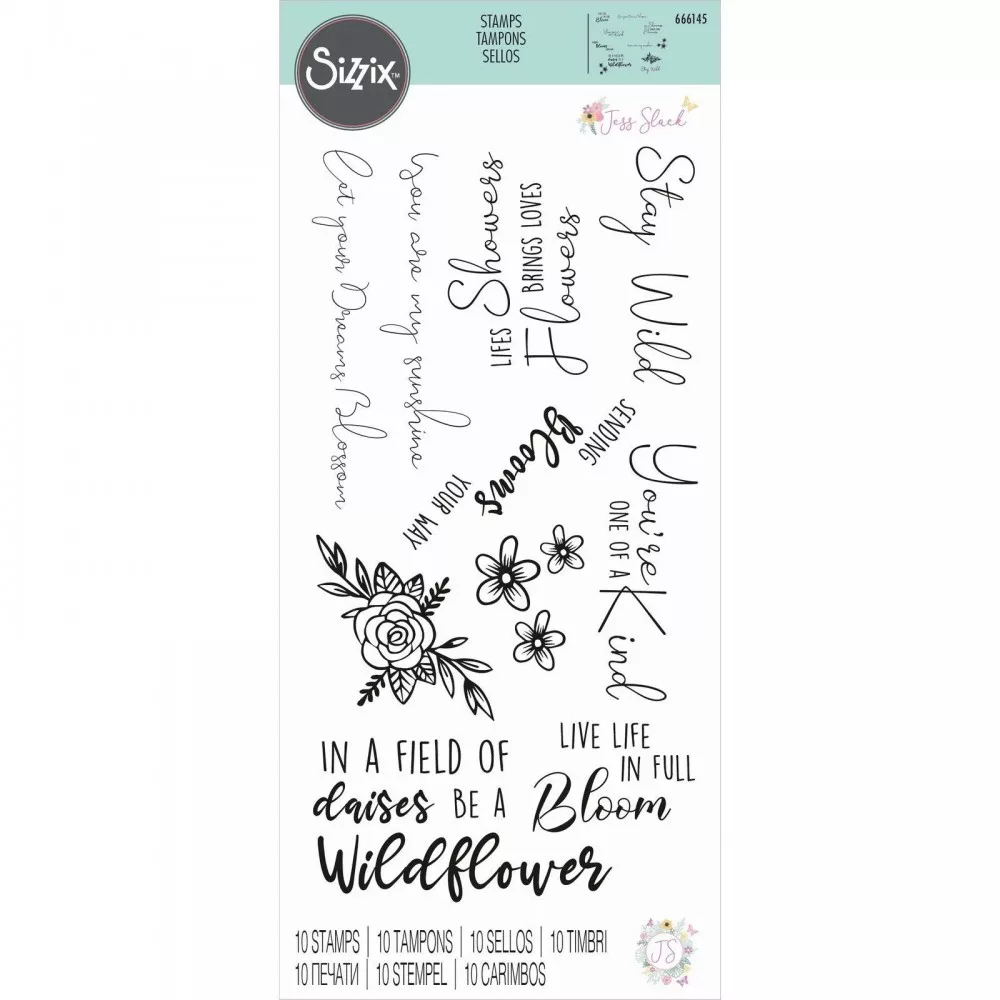 Sizzix™
STAMPS
TAMPONS
SELLOS
666145
Jess Slack
Let your Dreams Blossom
You are my sunshine
LIFES Showers
BRINGS LOVES
Flowers
Stay Wild
SENDING
Blooms
YOUR WAY
You're
ONE OF A
Kind
IN A FIELD OF
daises BE A
Wildflower
LIVE LIFE
IN FULL
Bloom
10 STAMPS | 10 TAMPONS | 10 SELLOS | 10 TIMBRI
10 ПЕЧАТИ | 10 STEMPEL | 10 CARIMBOS
JS